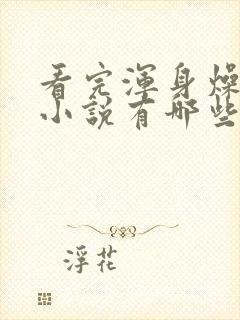 看完渾身燥
小說有哪些
浮花